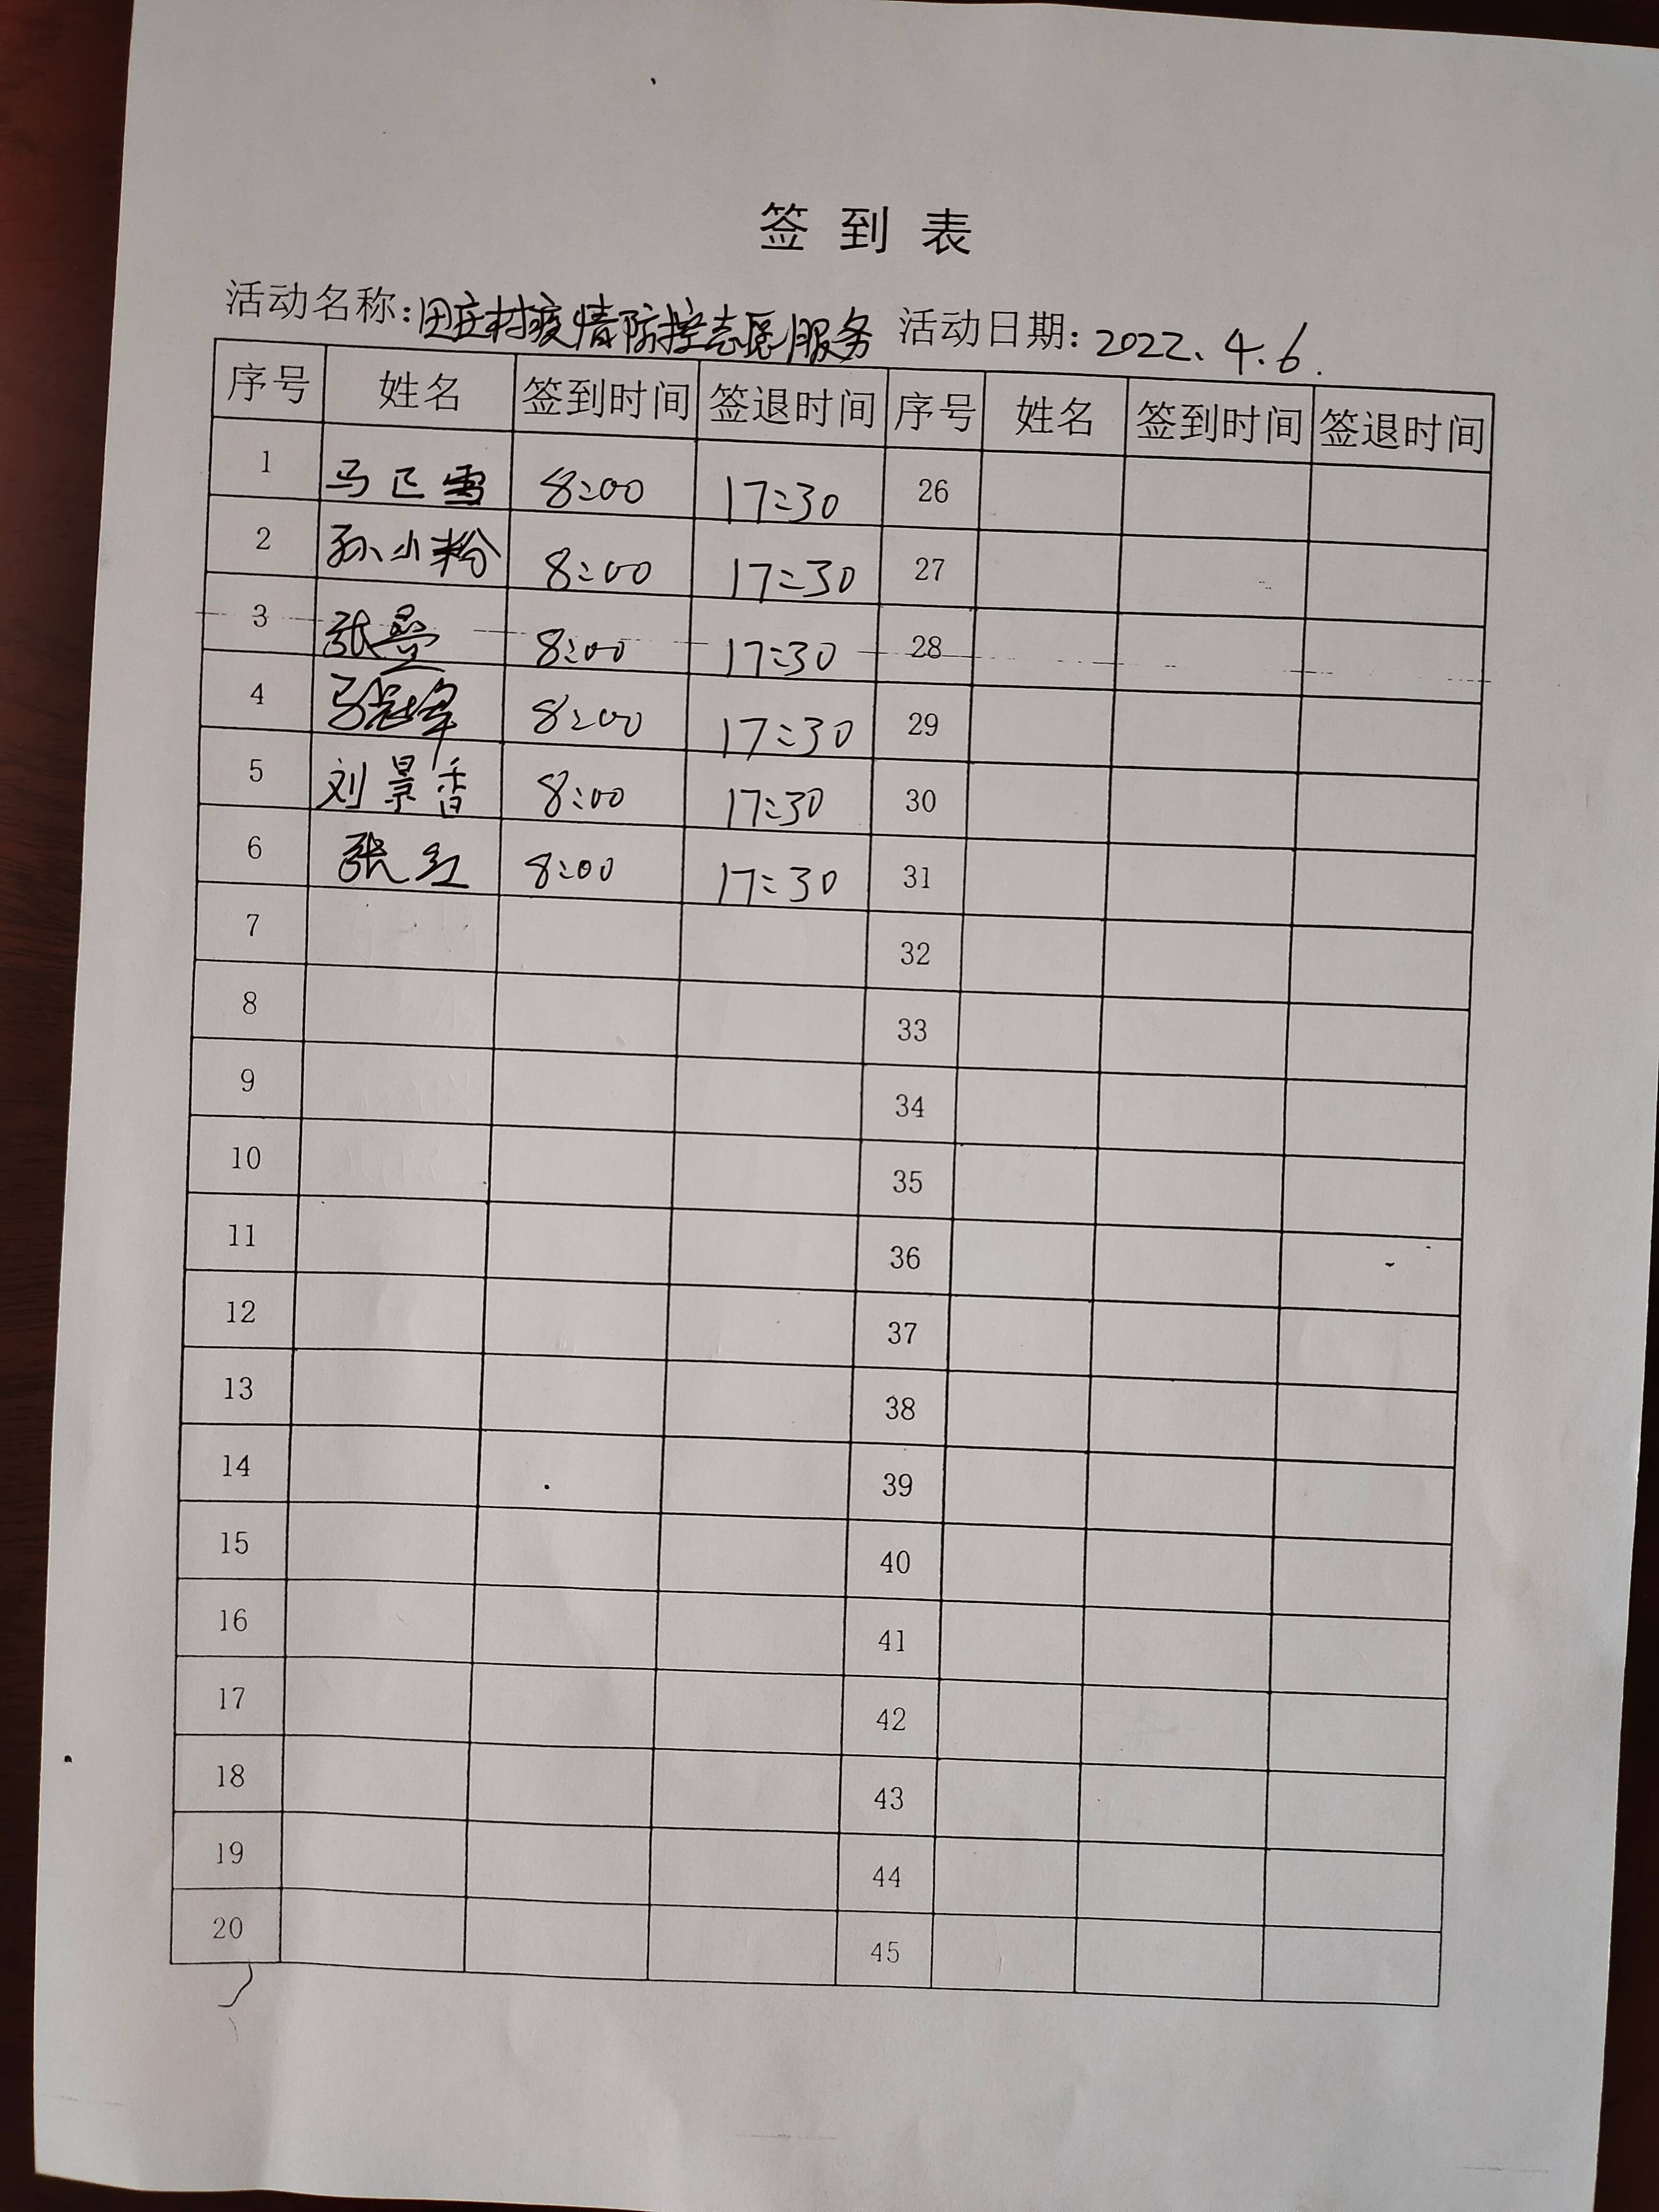 签到表
活动名称:田庄村疫情防控志愿服务 活动日期:2022.4.6.
序号 姓名 签到时间 签退时间 序号 姓名 签到时间 签退时间
1 马正雪 8:00 17:30 26
2 孙小粉 8:00 17:30 27
3 张 8:00 17:30 28
4 马 8:00 17:30 29
5 刘景香 8:00 17:30 30
6 张红 8:00 17:30 31
7 32
8 33
9 34
10 35
11 36
12 37
13 38
14 39
15 40
16 41
17 42
18 43
19 44
20 45